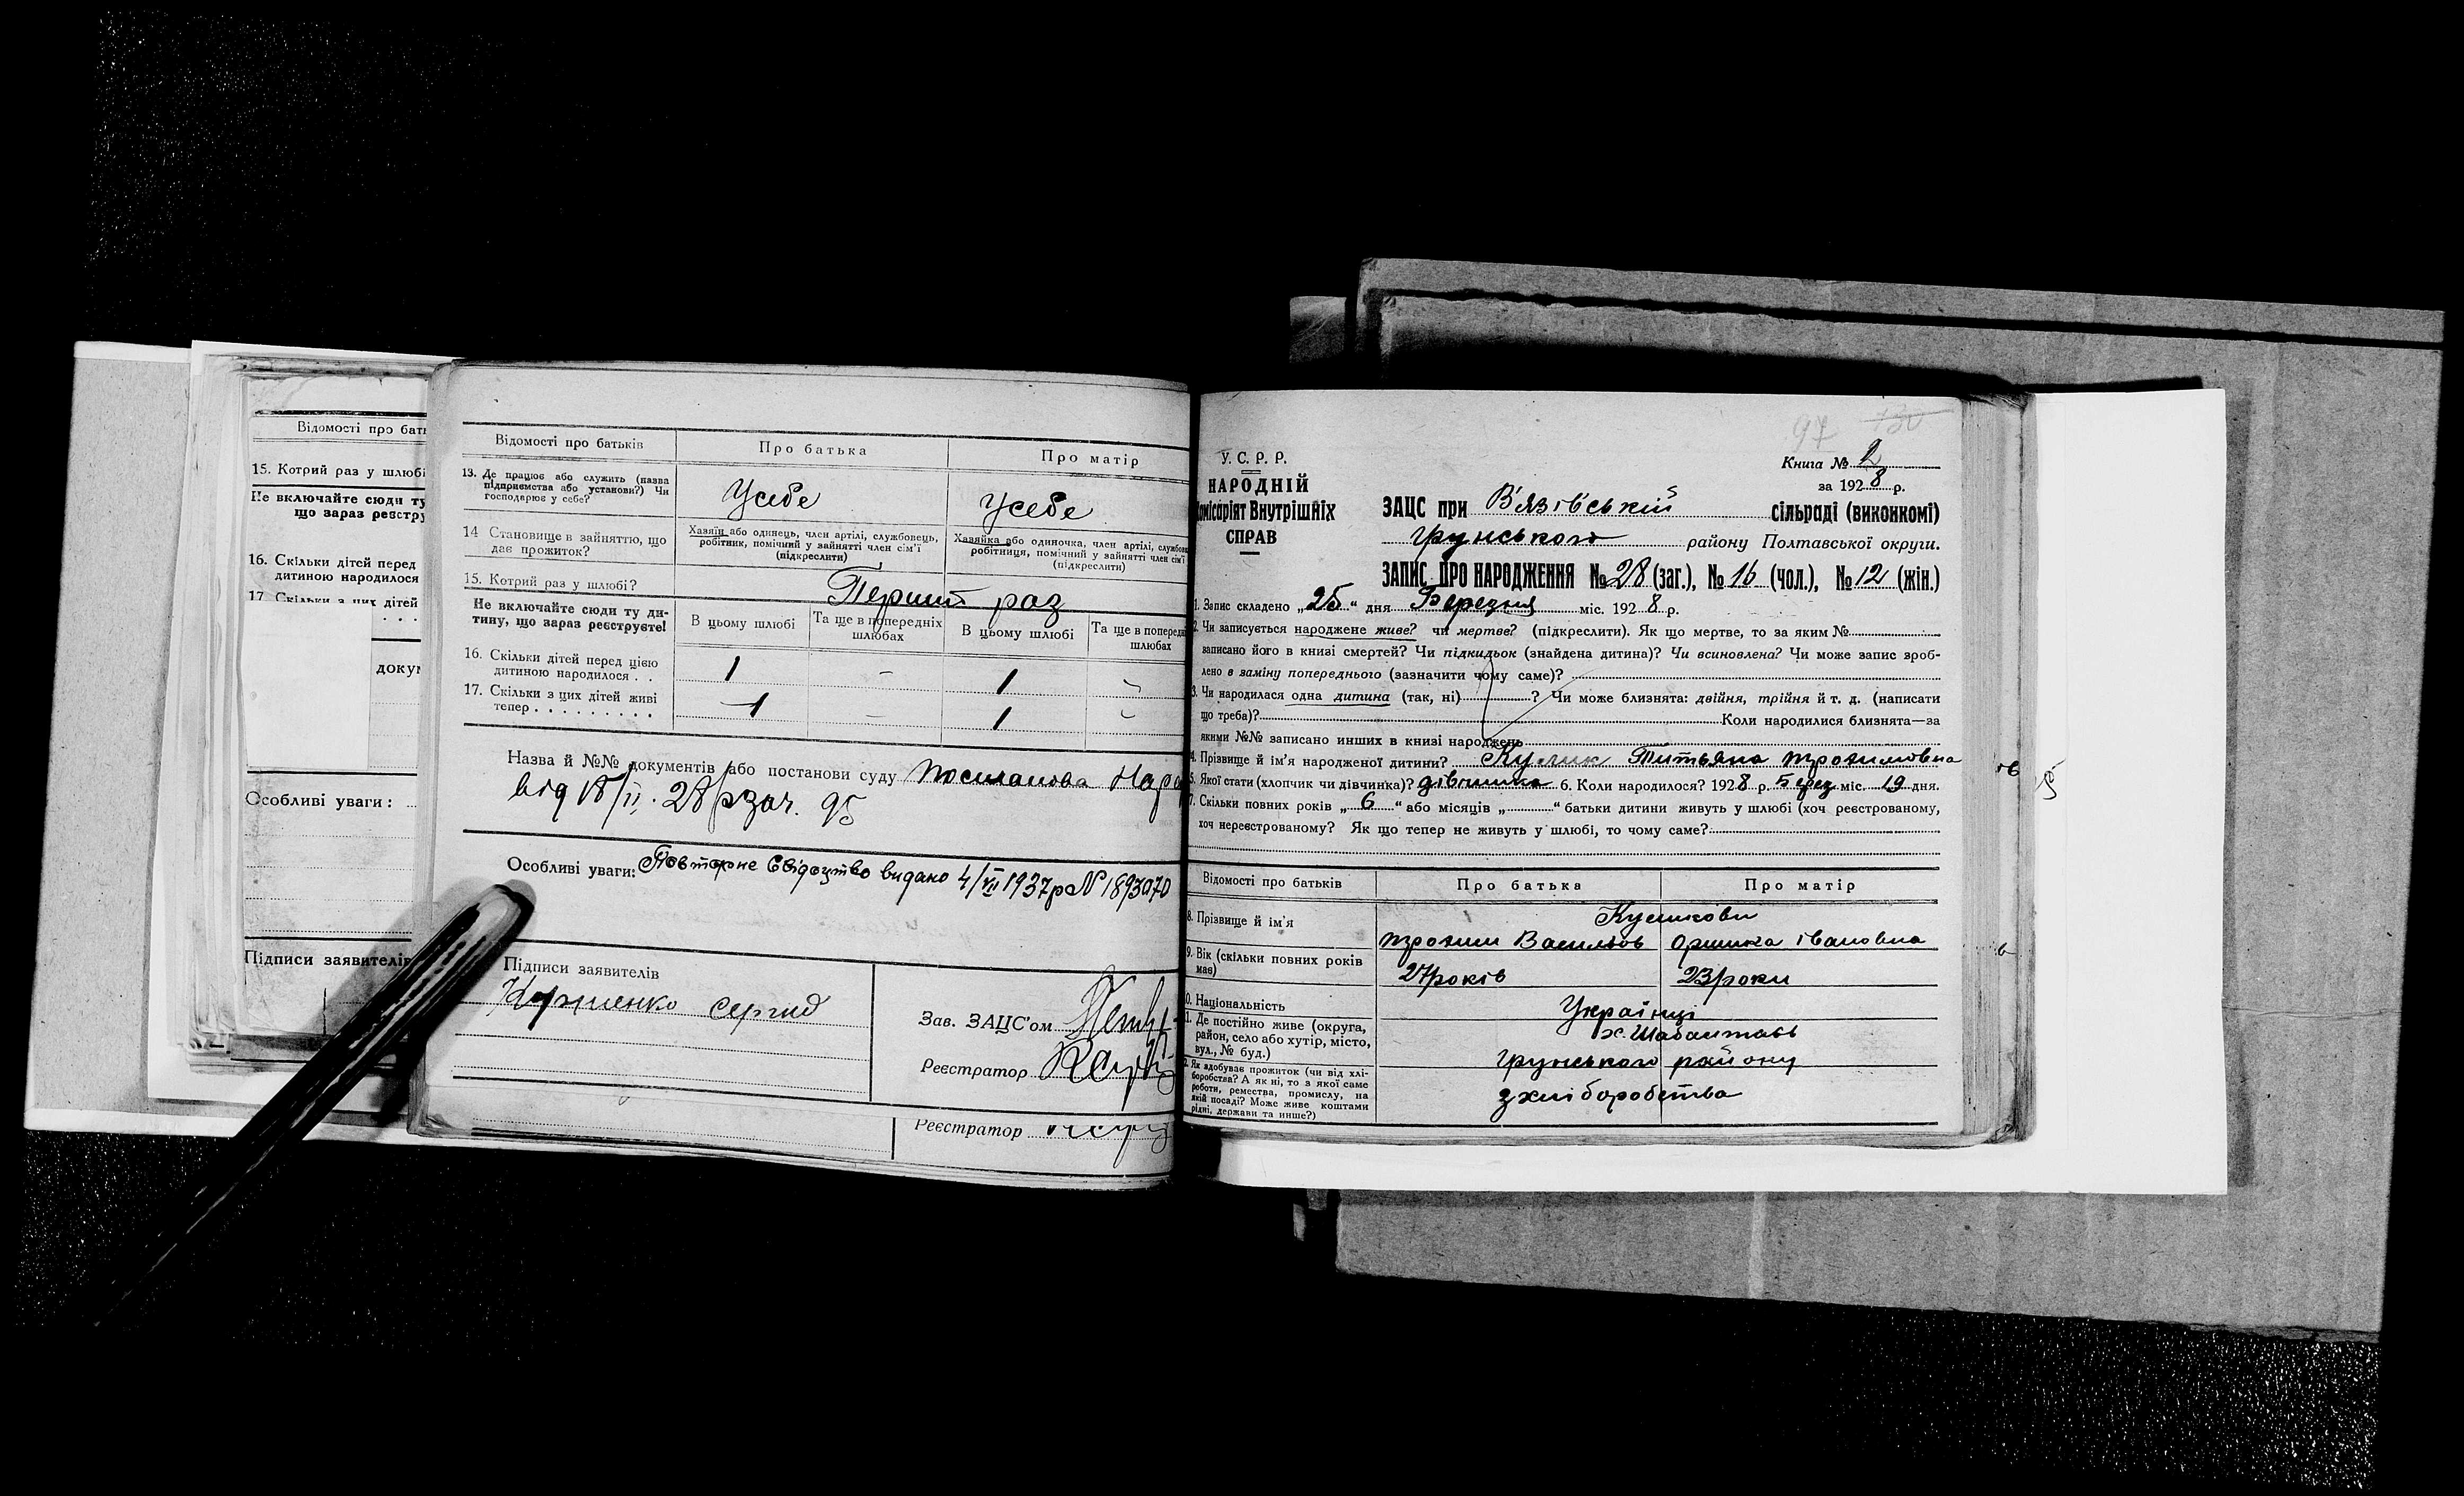 Відомості про бать
15. Котрий раз у шлюбі
Не включайте сюди ту
що зараз реєстру
16. Скільки дітей перед
дитиною народилося
17. Скільки з цих дітей
доку
Особливі уваги:
Підписи заявителів
Відомості про батьків Про батька Про матір
13. Де працює або служить (назва підприємства або установи?) Чи господарює у себе? Усебе Усебе
14 Становище в зайняттю, що дає прожиток? Хазяїн або одинець, член артілі, службовець, робітник, помічний у зайнятті член сім'ї (підкреслити) Хазяйка або одиночка, член артілі, службов робітниця, помічний у зайнятті член сім'ї (підкреслити)
15. Котрий раз у шлюбі? Перший раз
Не включайте сюди ту дитину, що зараз реєструєте! В цьому шлюбі Та ще в попередніх шлюбах В цьому шлюбі Та ще в поперед шлюбах
16. Скільки дітей перед цією дитиною народилося . . 1 – 1 –
17. Скільки з цих дітей живі тепер . . . . . . . . . 1 – 1 –
Назва й №№ документів або постанови суду
від 18/II. 28р зач. 95
Особливі уваги: Повторне Свідоцтво видано 4/VII 1937р № 1893970
Підписи заявителів
Сергій
Зав. ЗАЦС'ом
Реєстратор
Реєстратор
97 130
У. С. Р. Р.
НАРОДНІЙ
Комісаріят Внутрішніх
СПРАВ
Книга № 2
за 1928 р.
ЗАЦС при В'язівській сільраді (виконкомі)
Грунського району Полтавської округи.
ЗАПИС ПРО НАРОДЖЕННЯ № 28 (заг.), № 16 (чол.), № 12 (жін.)
1. Запис складено „25“ дня Березня міс. 1928 р.
2. Чи записується народжене живе? чи мертве? (підкреслити). Як що мертве, то за яким №
записано його в книзі смертей? Чи підкидьок (знайдена дитина)? Чи всиновлена? Чи може запис зроб-
лено в заміну попереднього (зазначити чому саме)?
3. Чи народилася одна дитина (так, ні) ? Чи може близнята: двійня, трійня й т. д. (написати
що треба)? Коли народилися близнята—за
якими №№ записано инших в книзі народжень
4. Прізвище й ім'я народженої дитини? Кулик Титьяна Трохимовна
5. Якої стати (хлопчик чи дівчинка)? дівчинка 6. Коли народилося? 1928 р. Берез міс. 19 дня.
7. Скільки повних років „6“ або місяців „ “ батьки дитини живуть у шлюбі (хоч реєстрованому,
хоч нереєстрованому? Як що тепер не живуть у шлюбі, то чому саме?
Відомості про батьків Про батька Про матір
8. Прізвище й ім'я Куликови
Трохим Васильов Оришка Івановна
9. Вік (скільки повних років має) 27 років 23 роки
10. Національність Українці
11. Де постійно живе (округа, район, село або хутір, місто, вул., № буд.) х. Шабалтаєв
Грунського району
12. Як здобуває прожиток (чи від хліборобства? А як ні, то з якої саме роботи, ремества, промислу, на якій посаді? Може живе коштами рідні, держави та инше?) з хліборобства